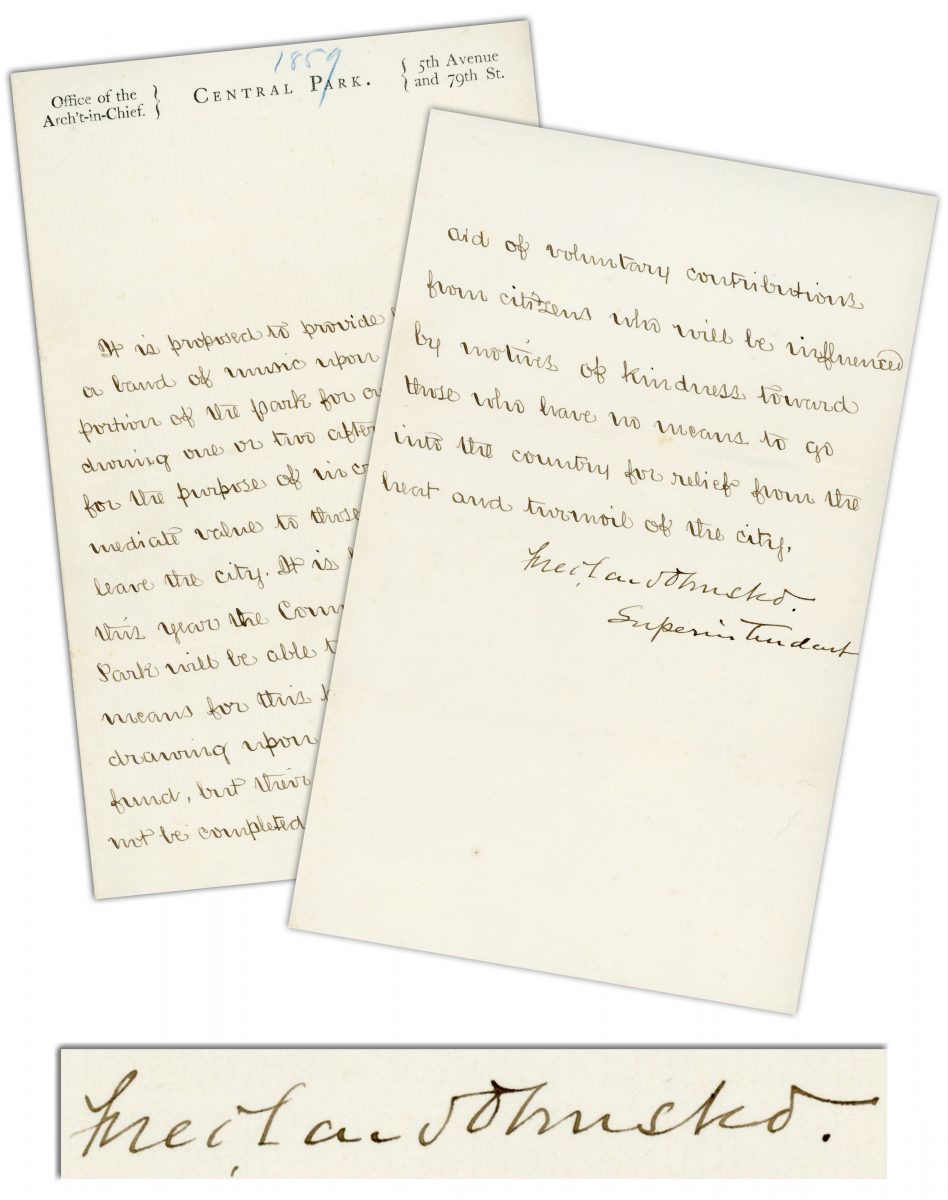 1859
Office of the
Arch't-in-Chief.
CENTRAL PARK.
5th Avenue
and 79th St.
It is proposed to provide
a band of music upon
portion of the Park for
during one or two
for the purpose of
mediate value to those
leave the city. It is
this year the
Park will be able
means for this
drawing upon
fund, but
not be completed
aid of voluntary contributions
from citizens who will be influenced
by motives of kindness toward
those who have no means to go
into the country for relief from the
heat and turmoil of the city.
Fred. Law Olmsted.
Superintendent
Fred. Law Olmsted.